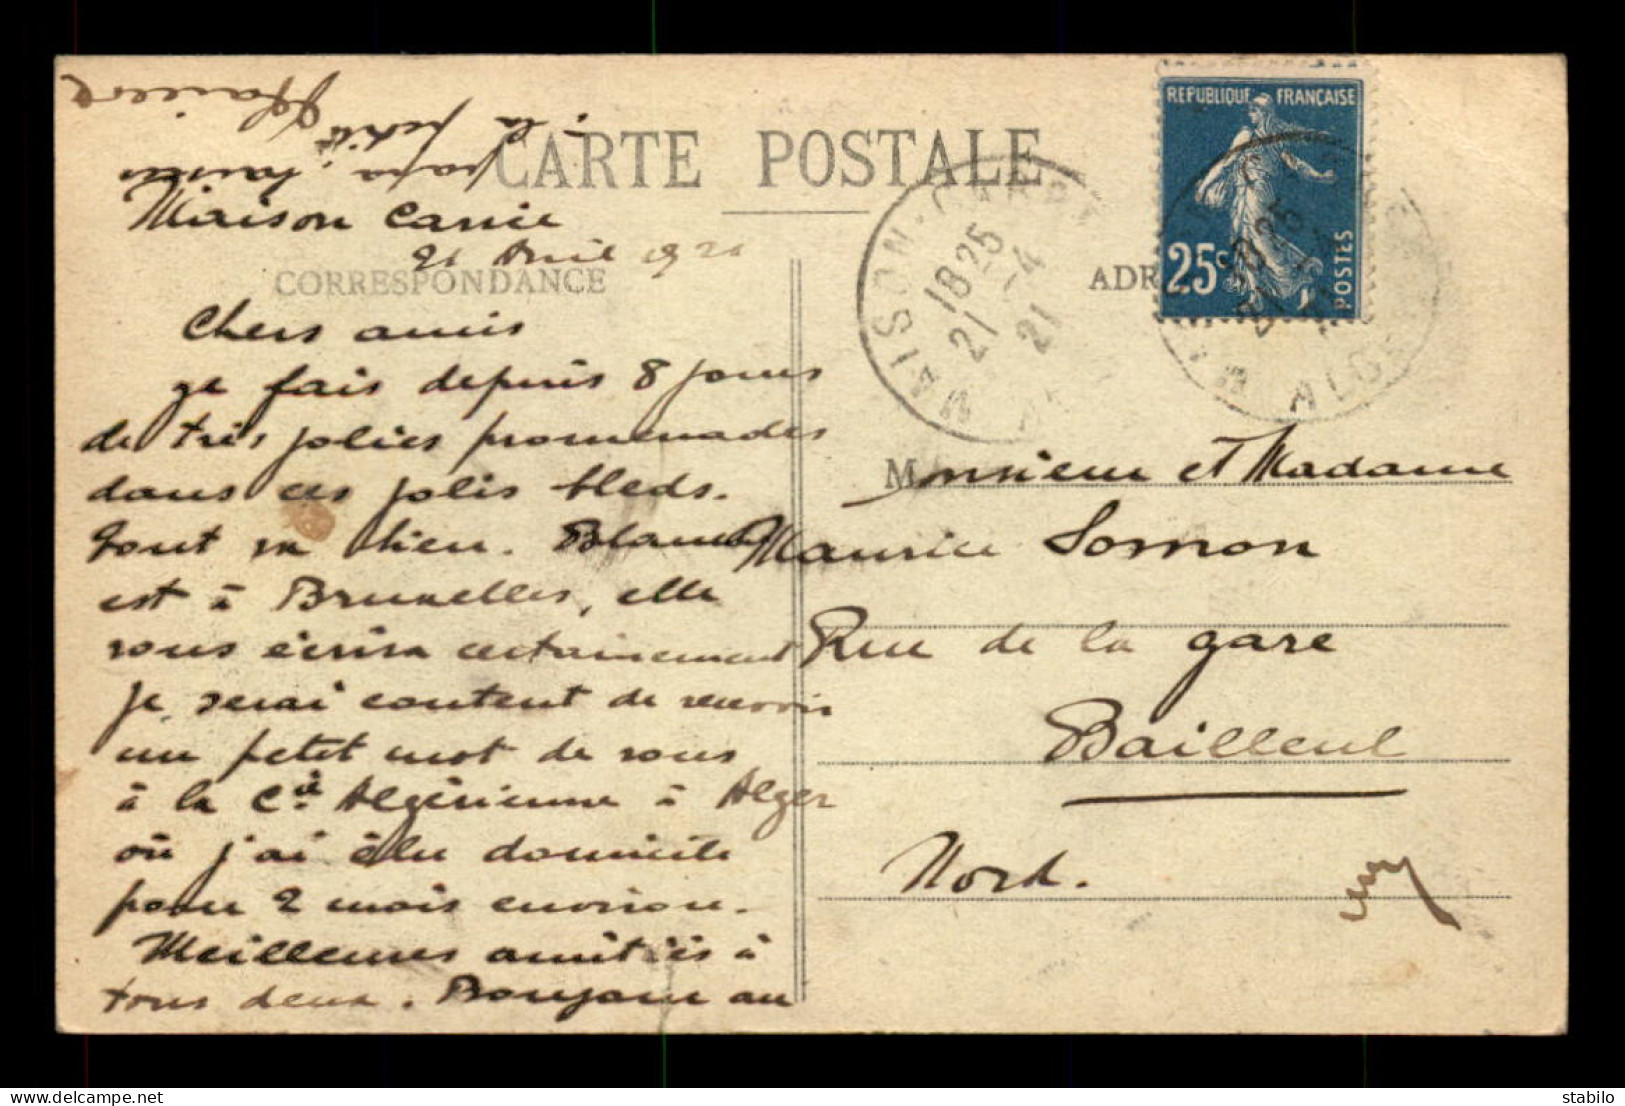 CARTE POSTALE
CORRESPONDANCE
ADR
REPUBLIQUE FRANÇAISE
25c
POSTES
MAISON-CARRÉE
18 25
21 -4
21
ALGER
Maison Carrée
21 Avril 1921
Chers amis
Je fais depuis 8 jours
de très jolies promenades
dans ces jolis bleds.
Tout va bien. Blanche
est à Bruxelles, elle
vous écrira certainement
Je serai content de recevoir
un petit mot de vous
à la Cie Algérienne à Alger
où j'ai élu domicile
pour 2 mois environ.
Meilleures amitiés à
tous deux. Bonjour au
papa, baisers
à la petite
Monsieur et Madame
Maurice Somon
Rue de la gare
Bailleul
Nord.
stabilo